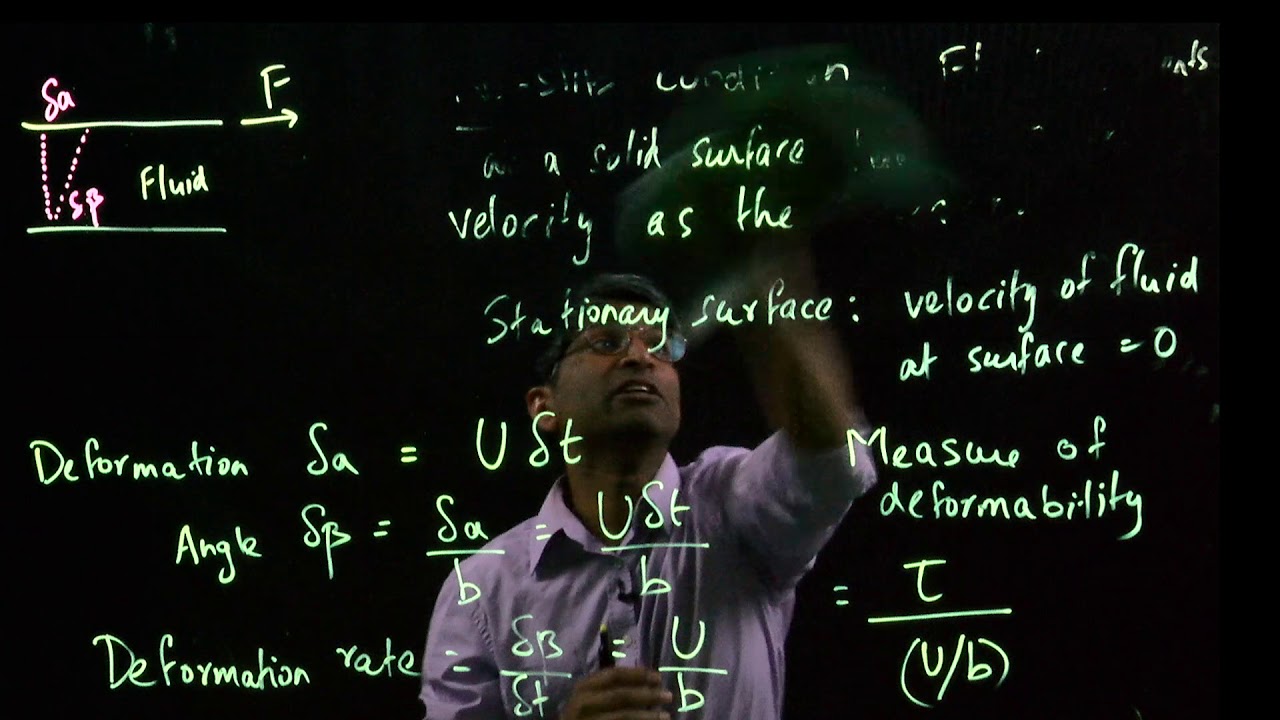 δa
F
Fluid
δβ
condition
a solid surface
velocity as the
Stationary surface : velocity of fluid
at surface = 0
Deformation δa = U δt
Angle δβ = δa/b = Uδt/b
Deformation rate = δβ/δt = U/b
Measure of
deformability
= τ/(U/b)